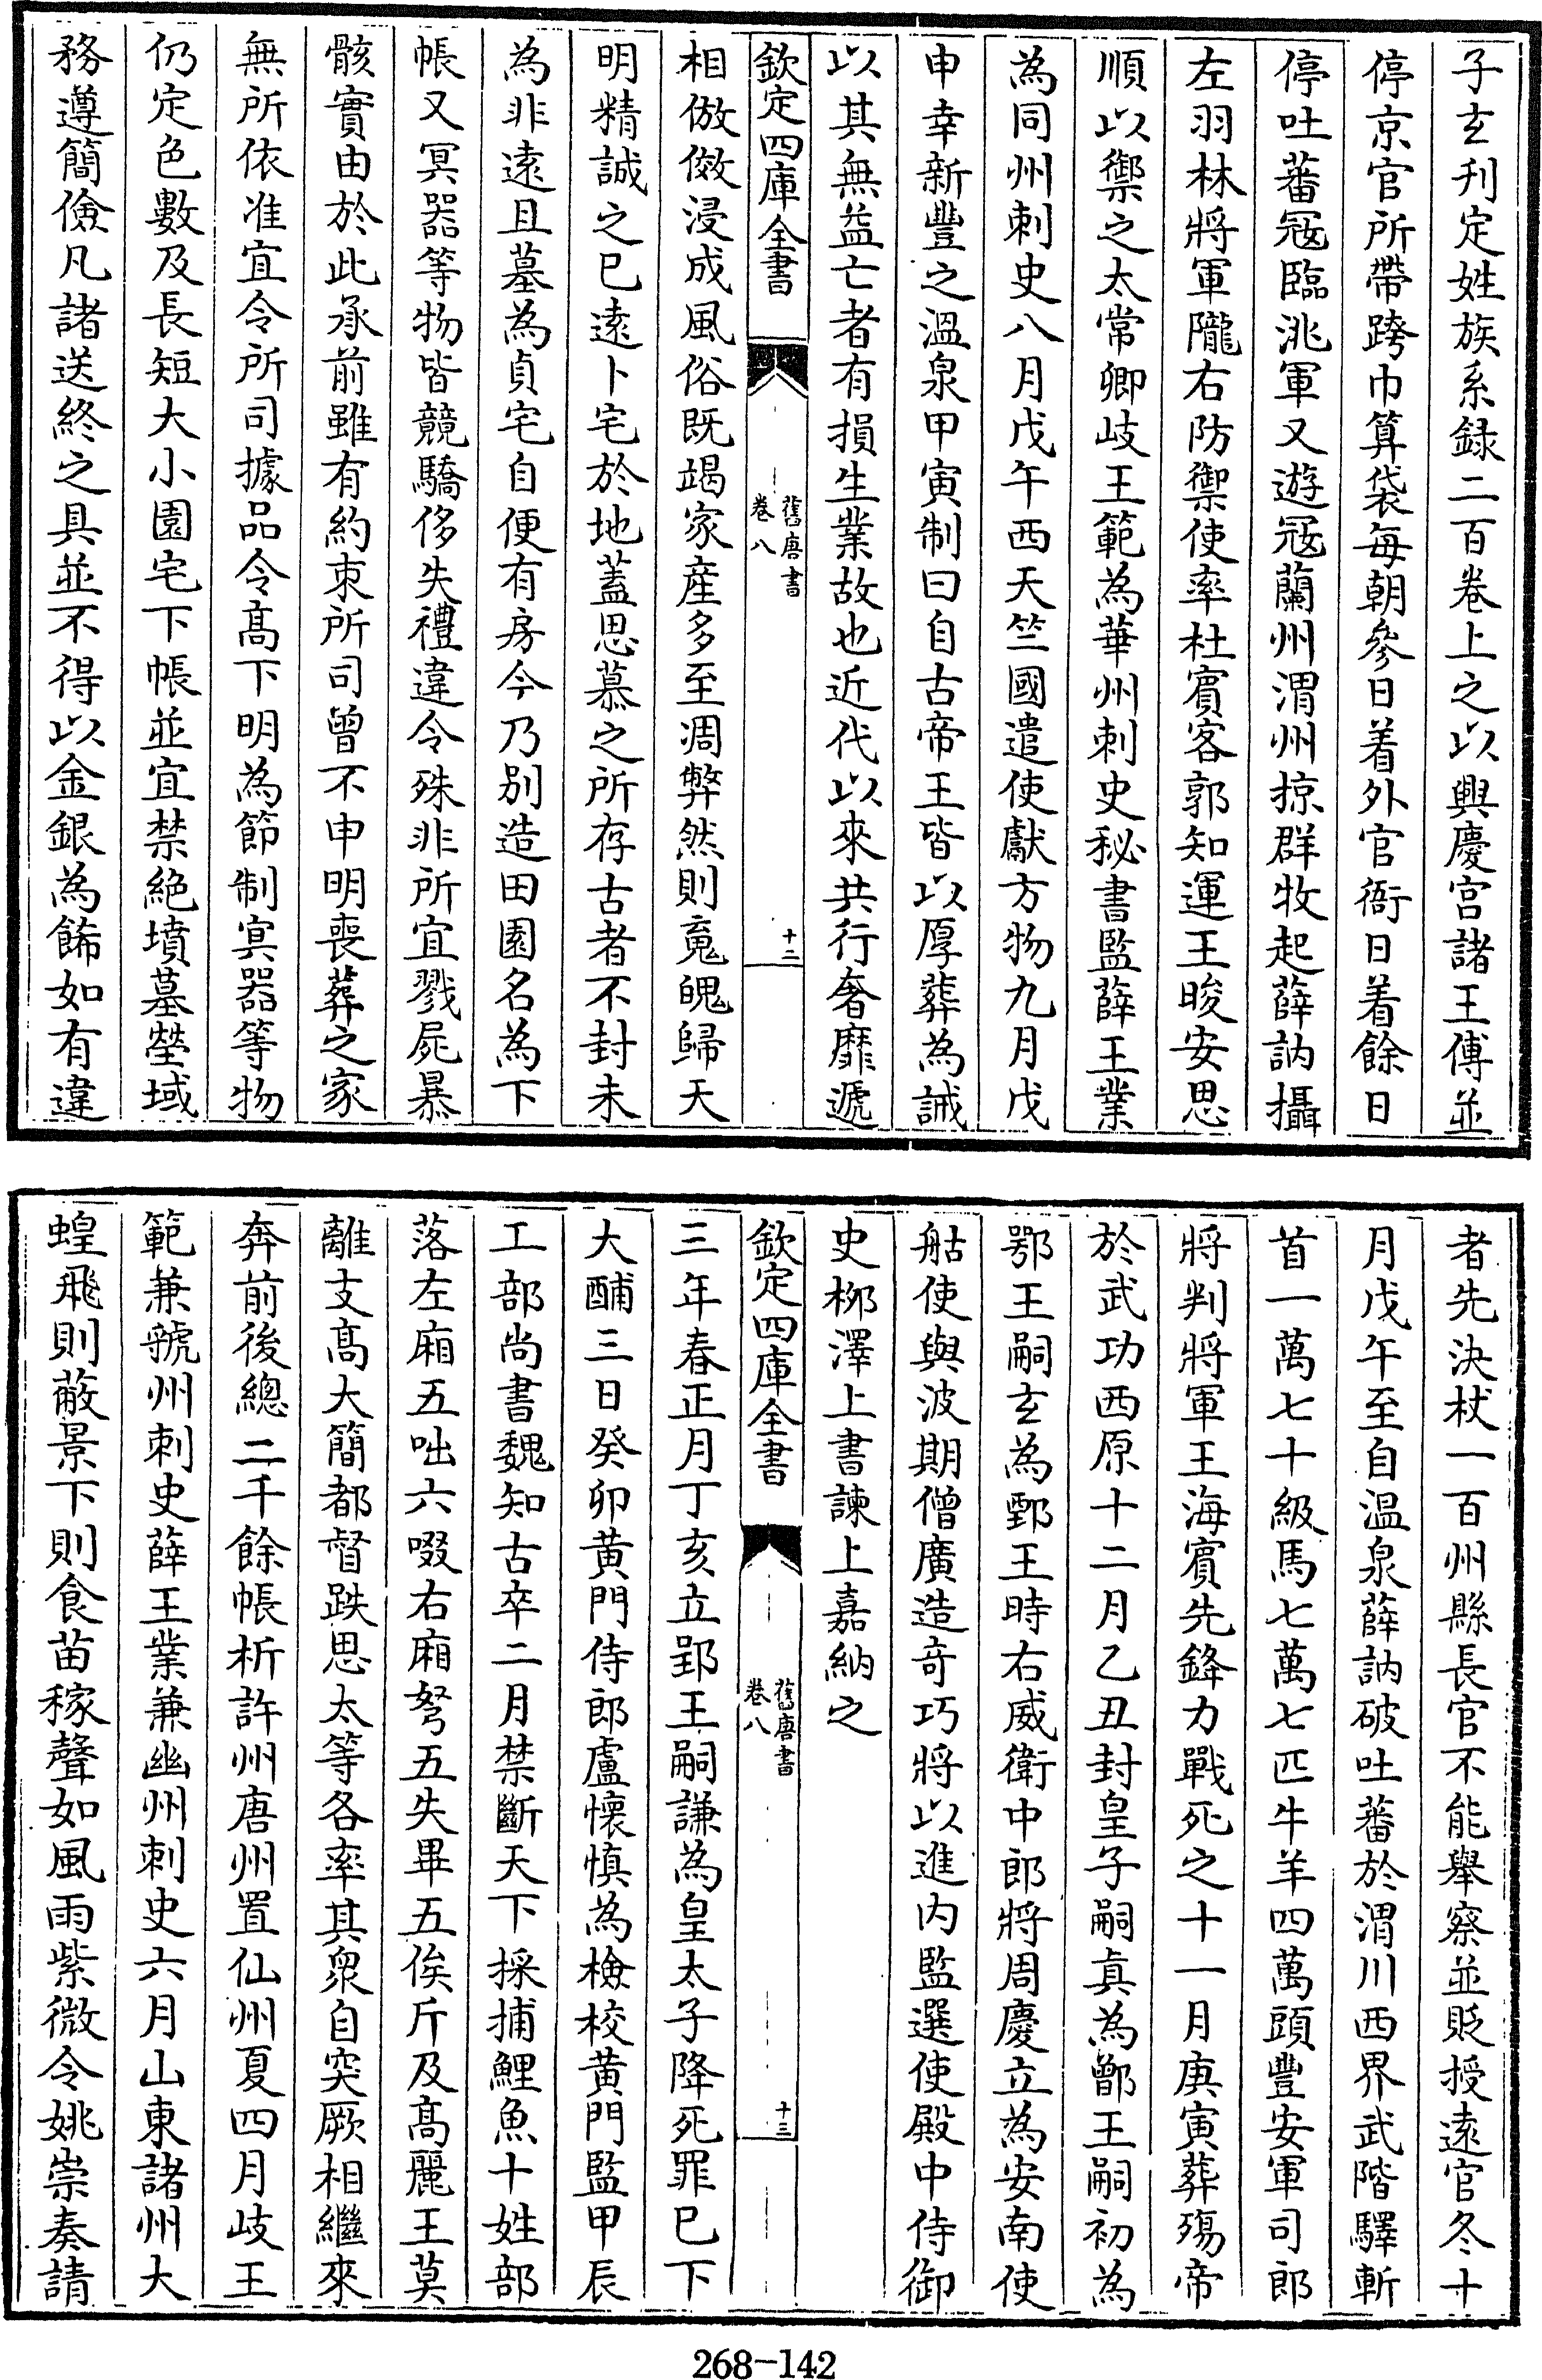 子玄刋定姓族系録二百卷上之以興慶宫諸王傅並
停京官所帶跨巾算袋每朝參日着外官衙日着餘日
停吐蕃冦臨洮軍又遊冦蘭州渭州掠群牧起薛訥攝
左羽林將軍隴右防禦使率杜賓客郭知運王晙安思
順以禦之太常卿岐王範為華州刺史秘書監薛王業
為同州刺史八月戊午西天竺國遣使獻方物九月戊
申幸新豐之溫泉甲寅制曰自古帝王皆以厚葬為誡
以其無益亡者有損生業故也近代以來共行奢靡遞
欽定四庫全書
舊唐書
卷八
十二
相倣傚浸成風俗既竭家産多至凋弊然則䰟魄歸天
明精誠之已逺卜宅於地蓋思慕之所存古者不封未
為非逺且墓為貞宅自便有房今乃别造田園名為下
帳又冥器等物皆競驕侈失禮違令殊非所宜戮屍暴
骸實由於此承前雖有約朿所司曾不申明喪葬之家
無所依准宜令所司據品令髙下明為節制冥器等物
仍定色數及長短大小園宅下帳並宜禁絶墳墓塋域
務遵簡儉凡諸送終之具並不得以金銀為飾如有違
者先決杖一百州縣長官不能舉察並貶授逺官冬十
月戊午至自温泉薛訥破吐蕃於渭川西界武階驛斬
首一萬七十級馬七萬七匹牛羊四萬頭豐安軍司郎
將判將軍王海賓先鋒力戰死之十一月庚寅葬殤帝
於武功西原十二月乙丑封皇子嗣真為鄫王嗣初為
鄂王嗣玄為鄄王時右威衛中郎將周慶立為安南使
舶使與波期僧廣造奇巧將以進内監選使殿中侍御
史栁澤上書諫上嘉納之
欽定四庫全書
舊唐書
卷八
十三
三年春正月丁亥立郢王嗣謙為皇太子降死罪已下
大酺三日癸卯黄門侍郎盧懷慎為檢校黄門監甲辰
工部尚書魏知古卒二月禁斷天下採捕鯉魚十姓部
落左廂五咄六啜右廂弩五失畢五俟斤及髙麗王莫
離支髙大簡都督跌思太等各率其衆自突厥相繼來
奔前後總二千餘帳析許州唐州置仙州夏四月岐王
範兼虢州刺史薛王業兼幽州刺史六月山東諸州大
蝗飛則蔽景下則食苗稼聲如風雨紫微令姚崇奏請
268-142